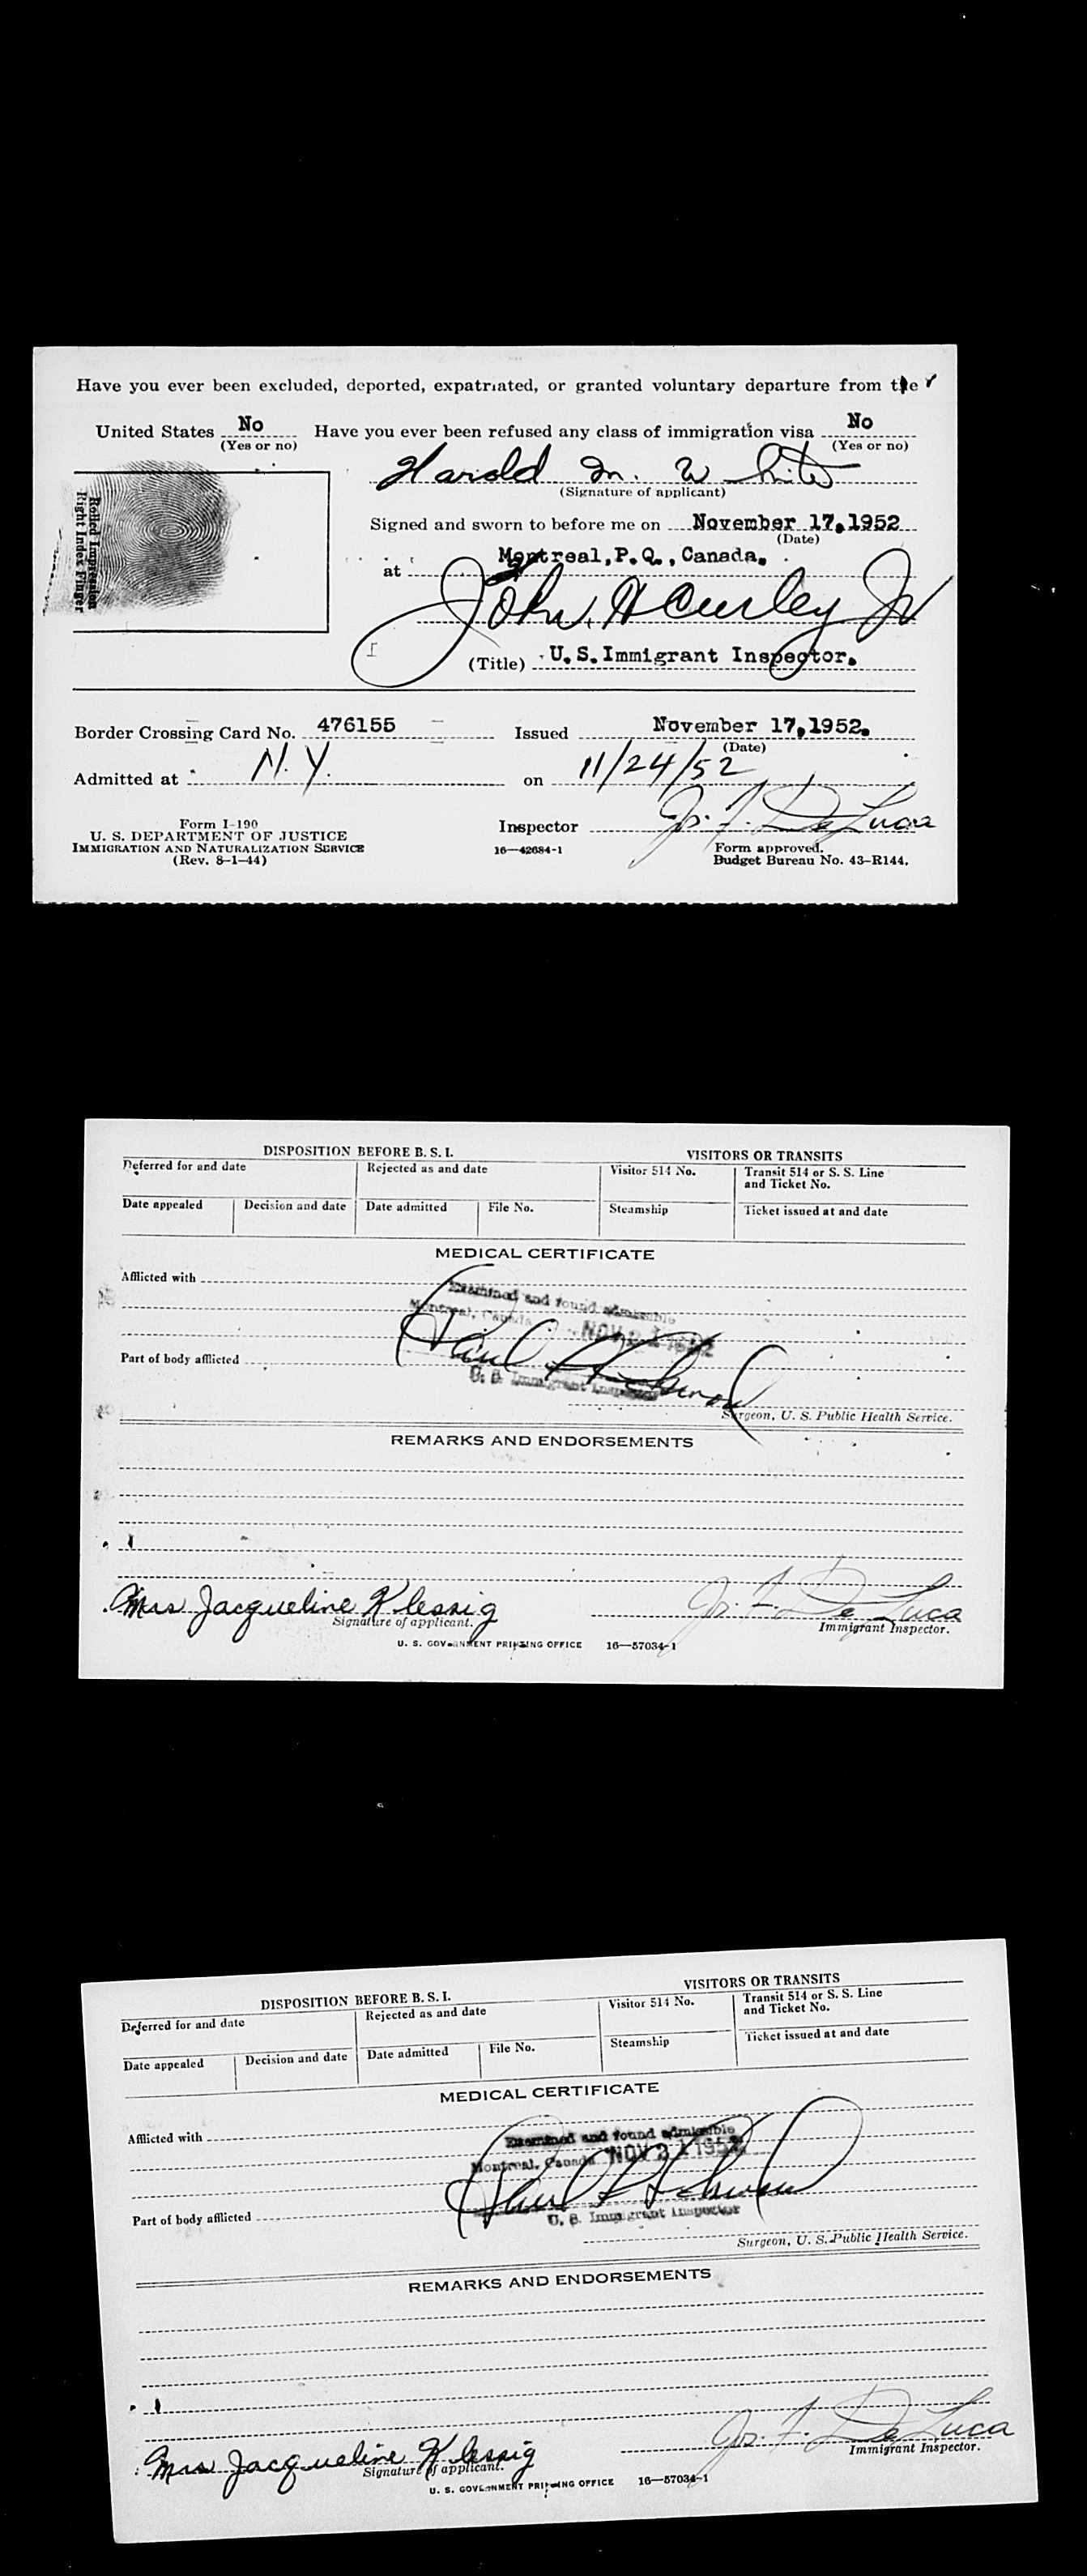 Have you ever been excluded, deported, expatriated, or granted voluntary departure from the
United States No Have you ever been refused any class of immigration visa No
(Yes or no) (Yes or no)
Rolled Impression
Right Index Finger
Harold M. White
(Signature of applicant)
Signed and sworn to before me on November 17,1952
(Date)
at Montreal,P.Q., Canada.
John H Curley Jr
(Title) U.S.Immigrant Inspector.
Border Crossing Card No. 476155 Issued November 17,1952.
(Date)
Admitted at N.Y. on 11/24/52
Inspector Jos. F. De Luca
Form I-190
U. S. DEPARTMENT OF JUSTICE
IMMIGRATION AND NATURALIZATION SERVICE
(Rev. 8-1-44)
16—42684-1
Form approved.
Budget Bureau No. 43-R144.
DISPOSITION BEFORE B. S. I. VISITORS OR TRANSITS
Deferred for and date Rejected as and date Visitor 514 No. Transit 514 or S. S. Line
and Ticket No.
Date appealed Decision and date Date admitted File No. Steamship Ticket issued at and date
MEDICAL CERTIFICATE
Afflicted with
Examined and found admissible
Montreal, Canada NOV 21 1952
Part of body afflicted Paul
U. S. Immigrant Inspector
Surgeon, U. S. Public Health Service.
REMARKS AND ENDORSEMENTS
Mrs Jacqueline Klessig Jos. F. De Luca
Signature of applicant. Immigrant Inspector.
U. S. GOVERNMENT PRINTING OFFICE 16—57034-1
DISPOSITION BEFORE B. S. I. VISITORS OR TRANSITS
Deferred for and date Rejected as and date Visitor 514 No. Transit 514 or S. S. Line
and Ticket No.
Date appealed Decision and date Date admitted File No. Steamship Ticket issued at and date
MEDICAL CERTIFICATE
Afflicted with
Examined and found admissible
Montreal, Canada NOV 21 1952
Part of body afflicted Paul
U. S. Immigrant Inspector
Surgeon, U. S. Public Health Service.
REMARKS AND ENDORSEMENTS
Mrs Jacqueline Klessig Jos. F. De Luca
Signature of applicant. Immigrant Inspector.
U. S. GOVERNMENT PRINTING OFFICE 16—57034-1